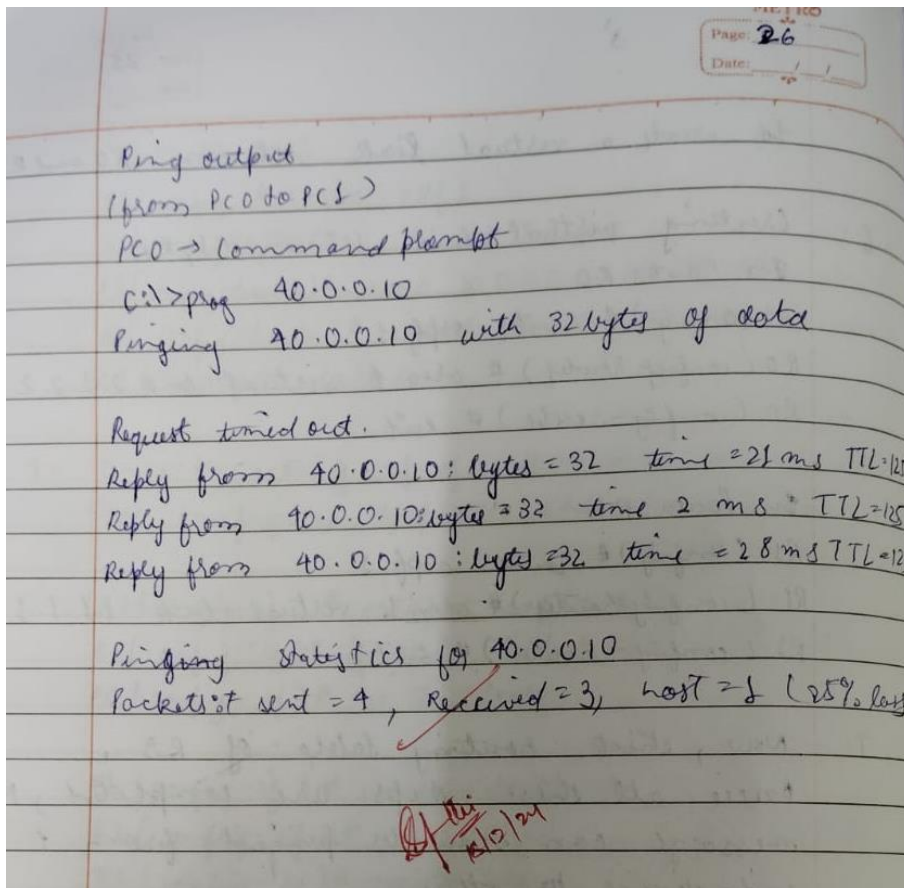 METRO
Page: 26
Date: / /
Ping output
(from PC0 to PC1)
PC0 → Command prompt
C:\>ping 40.0.0.10
Pinging 40.0.0.10 with 32 bytes of data
Request timed out.
Reply from 40.0.0.10: bytes = 32 time = 21 ms TTL=125
Reply from 40.0.0.10: bytes = 32 time 2 ms TTL=125
Reply from 40.0.0.10: bytes =32 time = 28 ms TTL=12
Pinging statistics for 40.0.0.10
Packets: sent = 4, Received = 3, Lost = 1 (25% loss